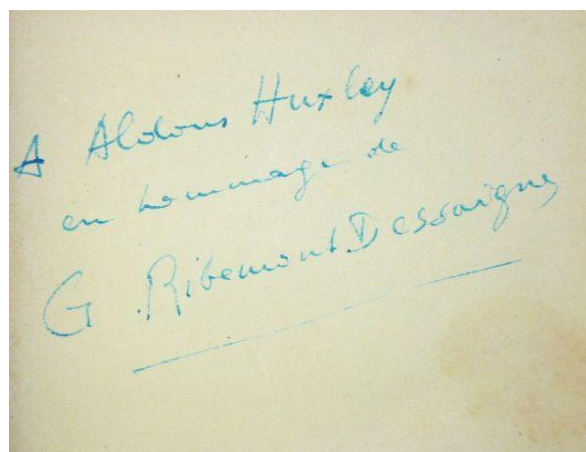 A Aldous Huxley
en hommage de
G. Ribemont Dessaignes